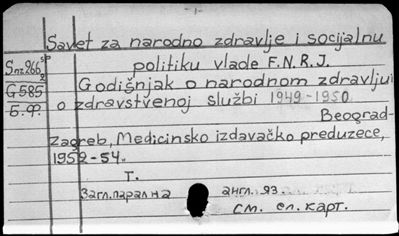 - 1 -
Savet za narodno zdravlje i socijalnu
politiku vlade F.N.R.J.
Godišnjak o narodnom zdravlju
o zdravstvenoj službi 1949-1950.
Beograd-
Zagreb, Medicinsko izdavačko preduzece,
1952-54.
т.
Загл. парал на англ. яз.
см. сл. карт.
G 585
Б.ф.